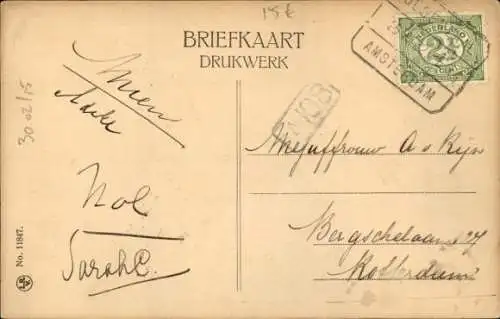 15 €
BRIEFKAART
DRUKWERK
NEDERLAND
2½
CENT
AMSTERDAM
Mien
Nol
Sarah C.
30 02/15
No. 11847.
Mejuffrouw A v. Rijn
Bergschelaan 27
Rotterdam